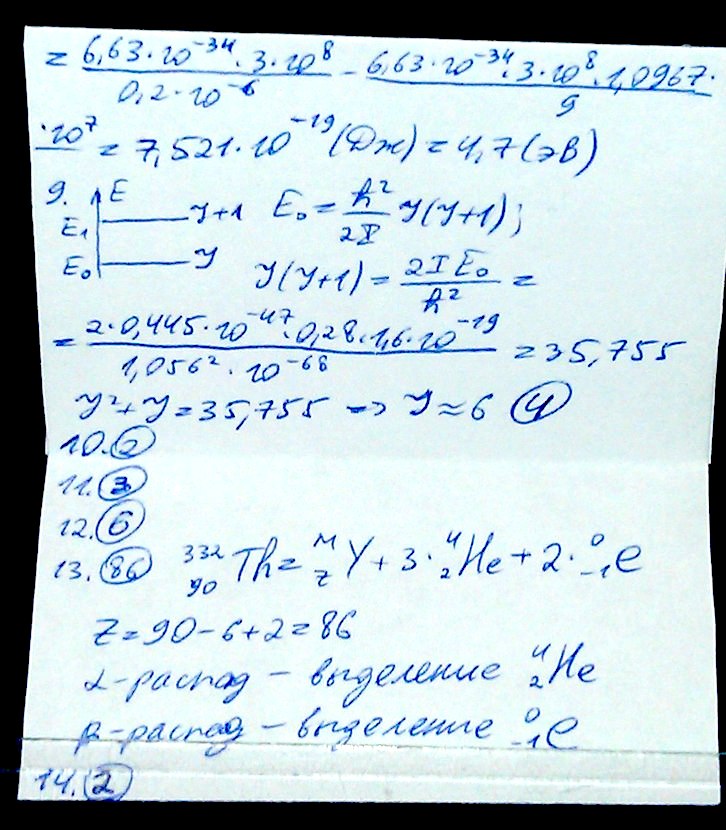 = 6,63·10^-34·3·10^8 / 0,2·10^-6 - 6,63·10^-34·3·10^8·1,0967· / 9
·10^7 = 7,521·10^-19 (Дж) = 4,7 (эВ)
9. E E₁ E₀ У+1 У E₀ = ħ²/2I У(У+1);
У(У+1) = 2IE₀/ħ² =
= 2·0,445·10^-47·0,28·1,6·10^-19 / 1,056²·10^-68 = 35,755
У²+У = 35,755 => У ≈ 6 (4)
10. (2)
11. (3)
12. (6)
13. (86) ³³²₉₀Th = ᴹ_Z Y + 3·⁴₂He + 2·⁰₋₁e
Z = 90 - 6 + 2 = 86
α-распад - выделение ⁴₂He
β-распад - выделение ⁰₋₁e
14. (2)